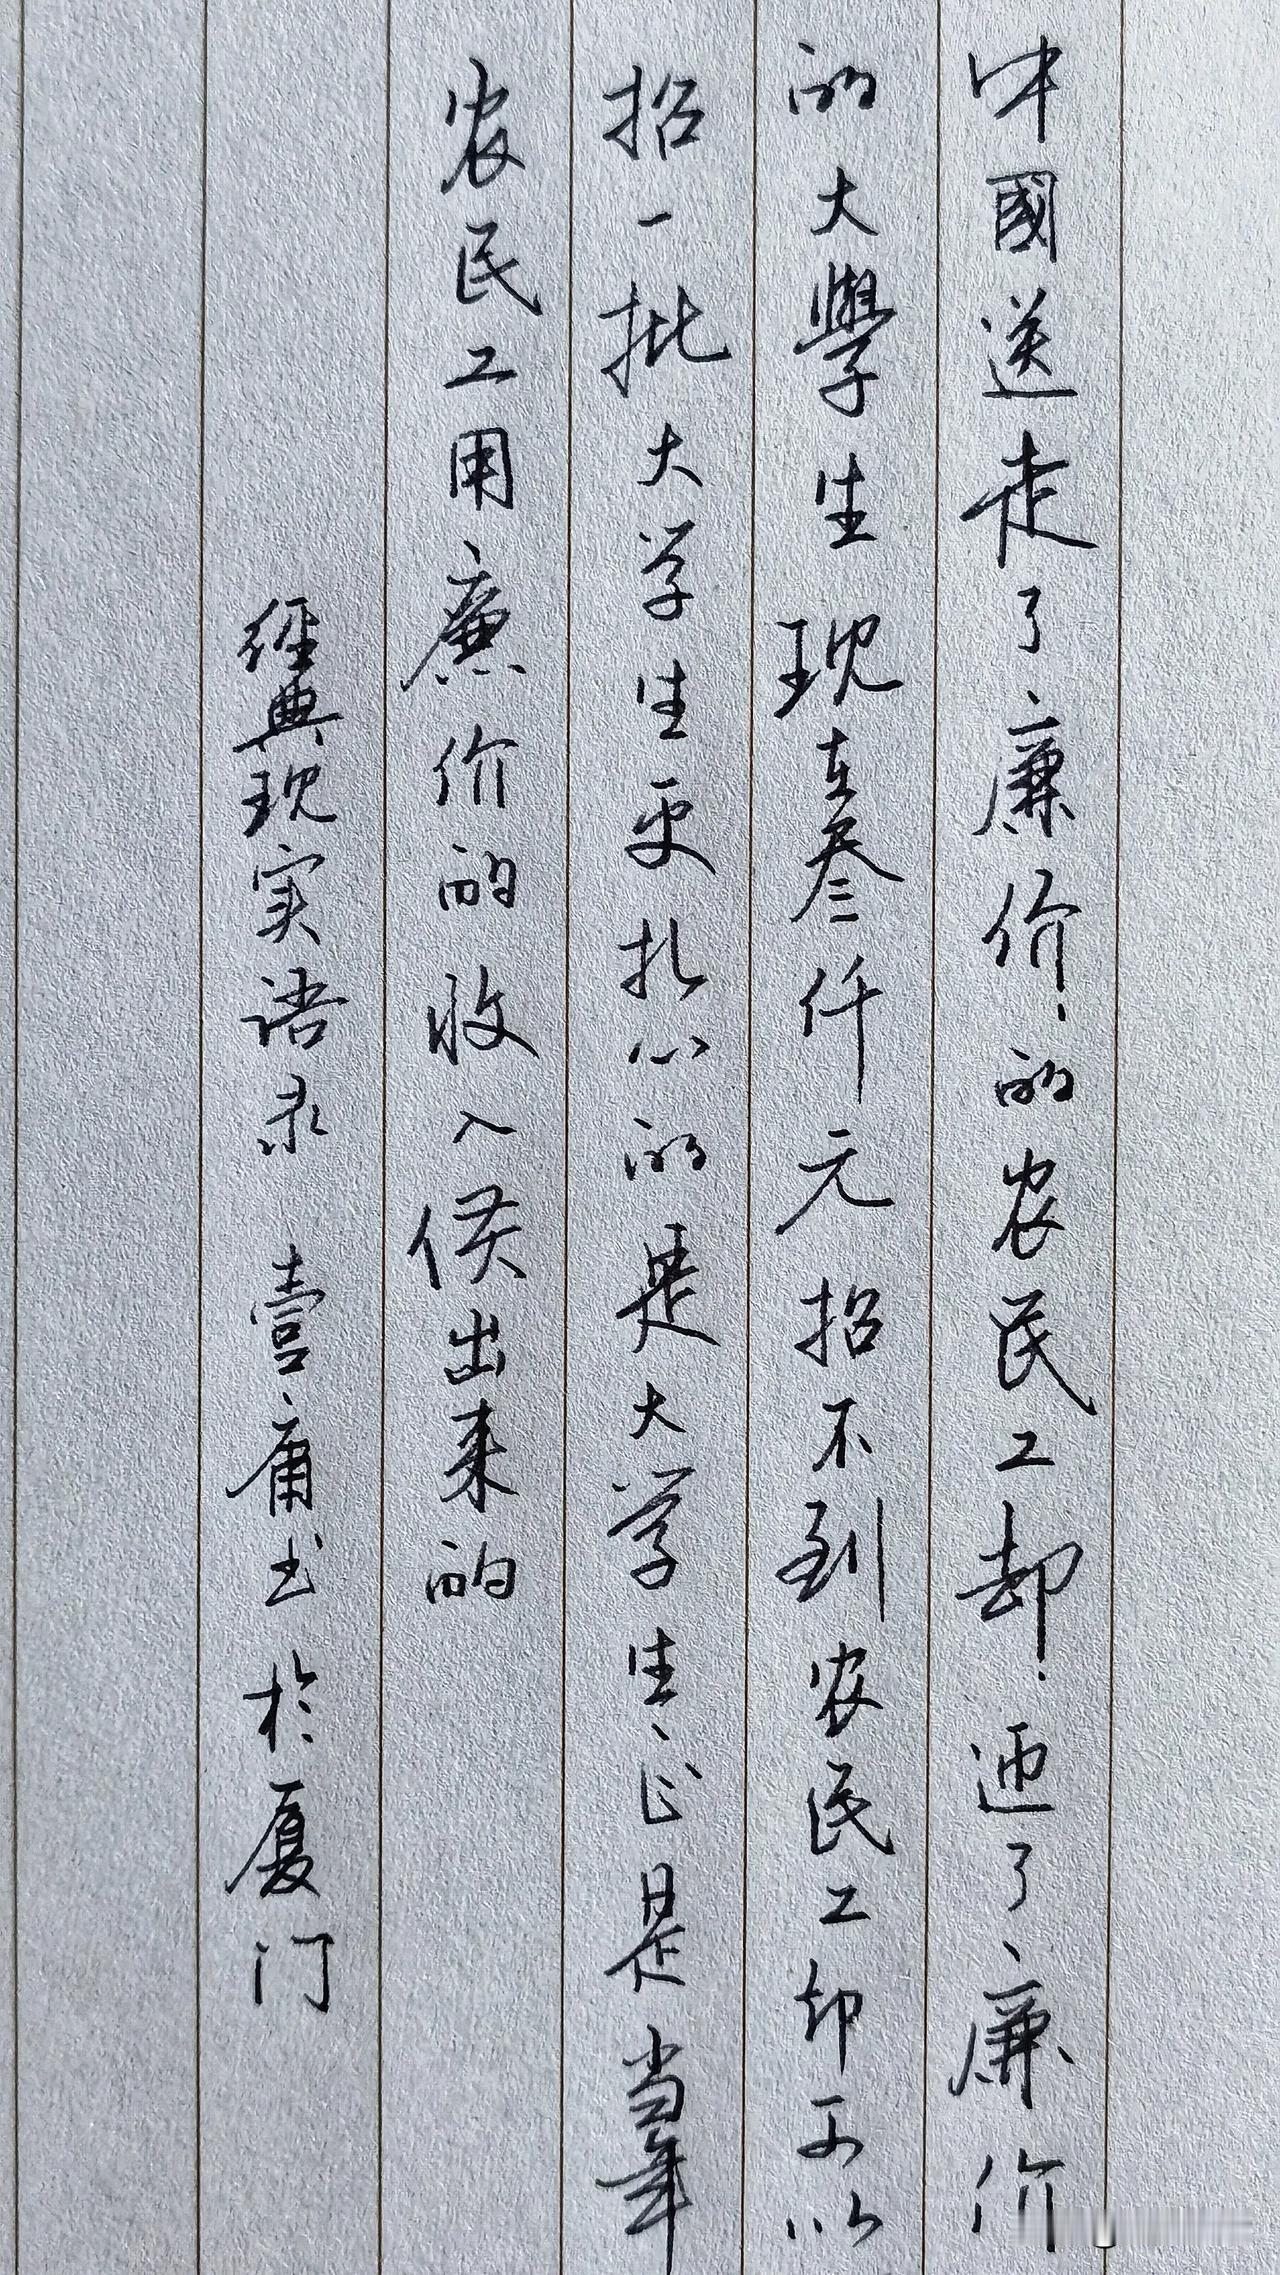 中國送走了廉价的农民工却迎了廉价
的大學生现在叁仟元招不到农民工却可以
招一批大学生更扎心的是大学生正是当年
农民工用廉价的收入供出来的
经典现实语录 壹庸书於厦门